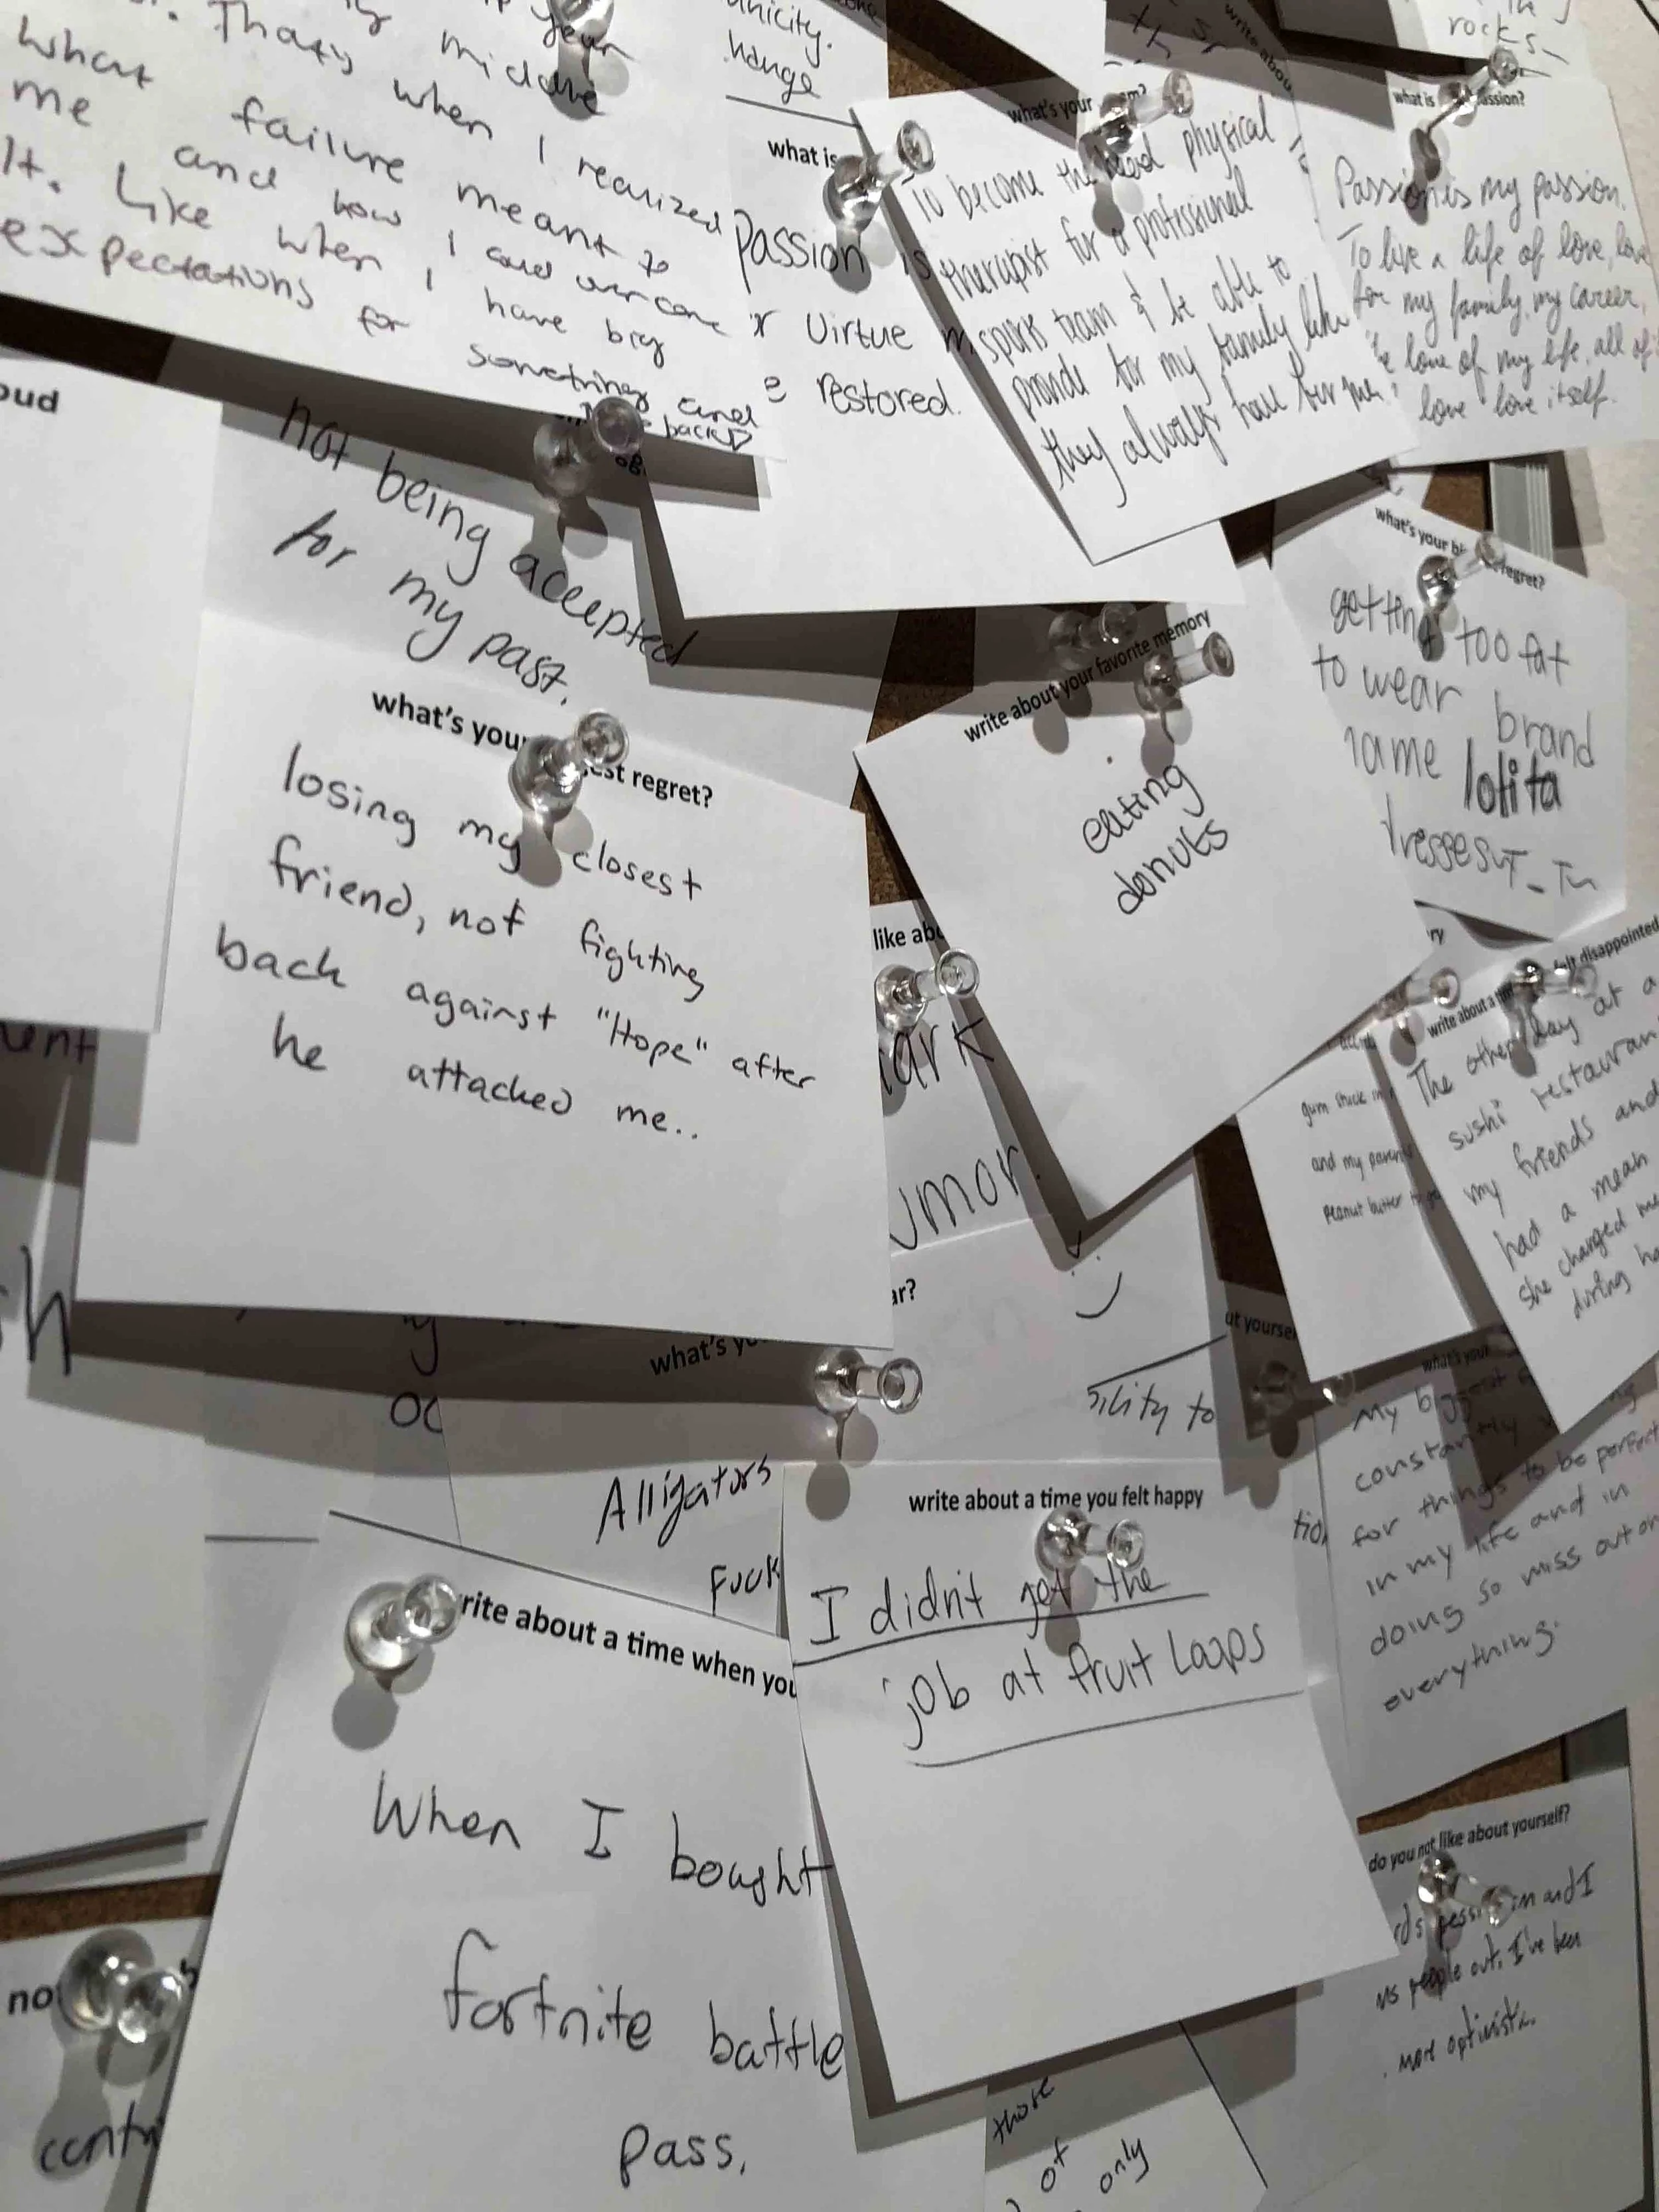 year
Thats when I realized
what failure meant to
me and how I could overcome
It. Like when I have big
expectations for something and
back
hange
what is
Passion
Virtue
restored.
what's your
To become the head physical
therapist for a professional
sports team & be able to
provide for my family like
they always have for me.
rocks
what is
Passion is my passion.
To live a life of love, love
for my family, my career,
love of my life, all of
love love itself.
oud
not being accepted
for my past.
what's your regret?
losing my closest
friend, not fighting
back against "Hope" after
he attacked me..
write about your favorite memory
eating
donuts
what's your regret?
getting too fat
to wear brand
name lolita
dresses T_T
like
umor.
ar?
:)
ility to
write about a felt disappointed
The other day at a
sushi restaurant
my friends and
had a mean
she charged me
during
gum stuck in
and my parents
Peanut butter
what's your
My biggest
constantly
for things to be perfect
in my life and in
doing so miss out on
everything.
what's
Alligators
Fuck
write about a time you felt happy
I didn't get the
job at fruit Loops
rite about a time when you
When I bought
fortnite battle
pass.
do you not like about yourself?
and I
people out. I've been
more optimistic.
those
of only